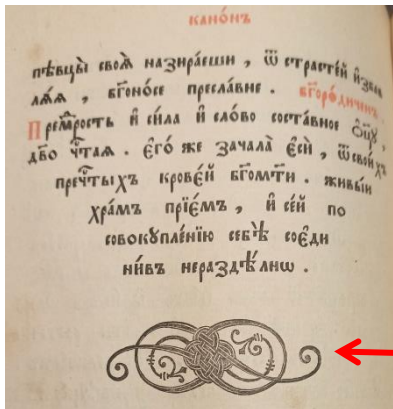 канѡ́нъ
пѣвцы̀ своѧ̀ назира́еши , ѿ страсте́й и҆збав
лѧ́ѧ , бг҃оно́се пресла́вне . бг҃оро́диченъ .
Прем꙯рость и҆ си́ла и҆ сло́во соста́вное ѻ҆ц҃у ,
дв҃о чⷭ҇таѧ . є҆го́ же зачала̀ є҆сѝ , ѿ свои́хъ
пречⷭ҇тыхъ крове́й бг҃омт҃и . живы́и
хра́мъ прїе́мъ , и҆ се́й по
совокупле́нїю себѣ̀ соє҆ди
ни́въ неразде́лнѡ .